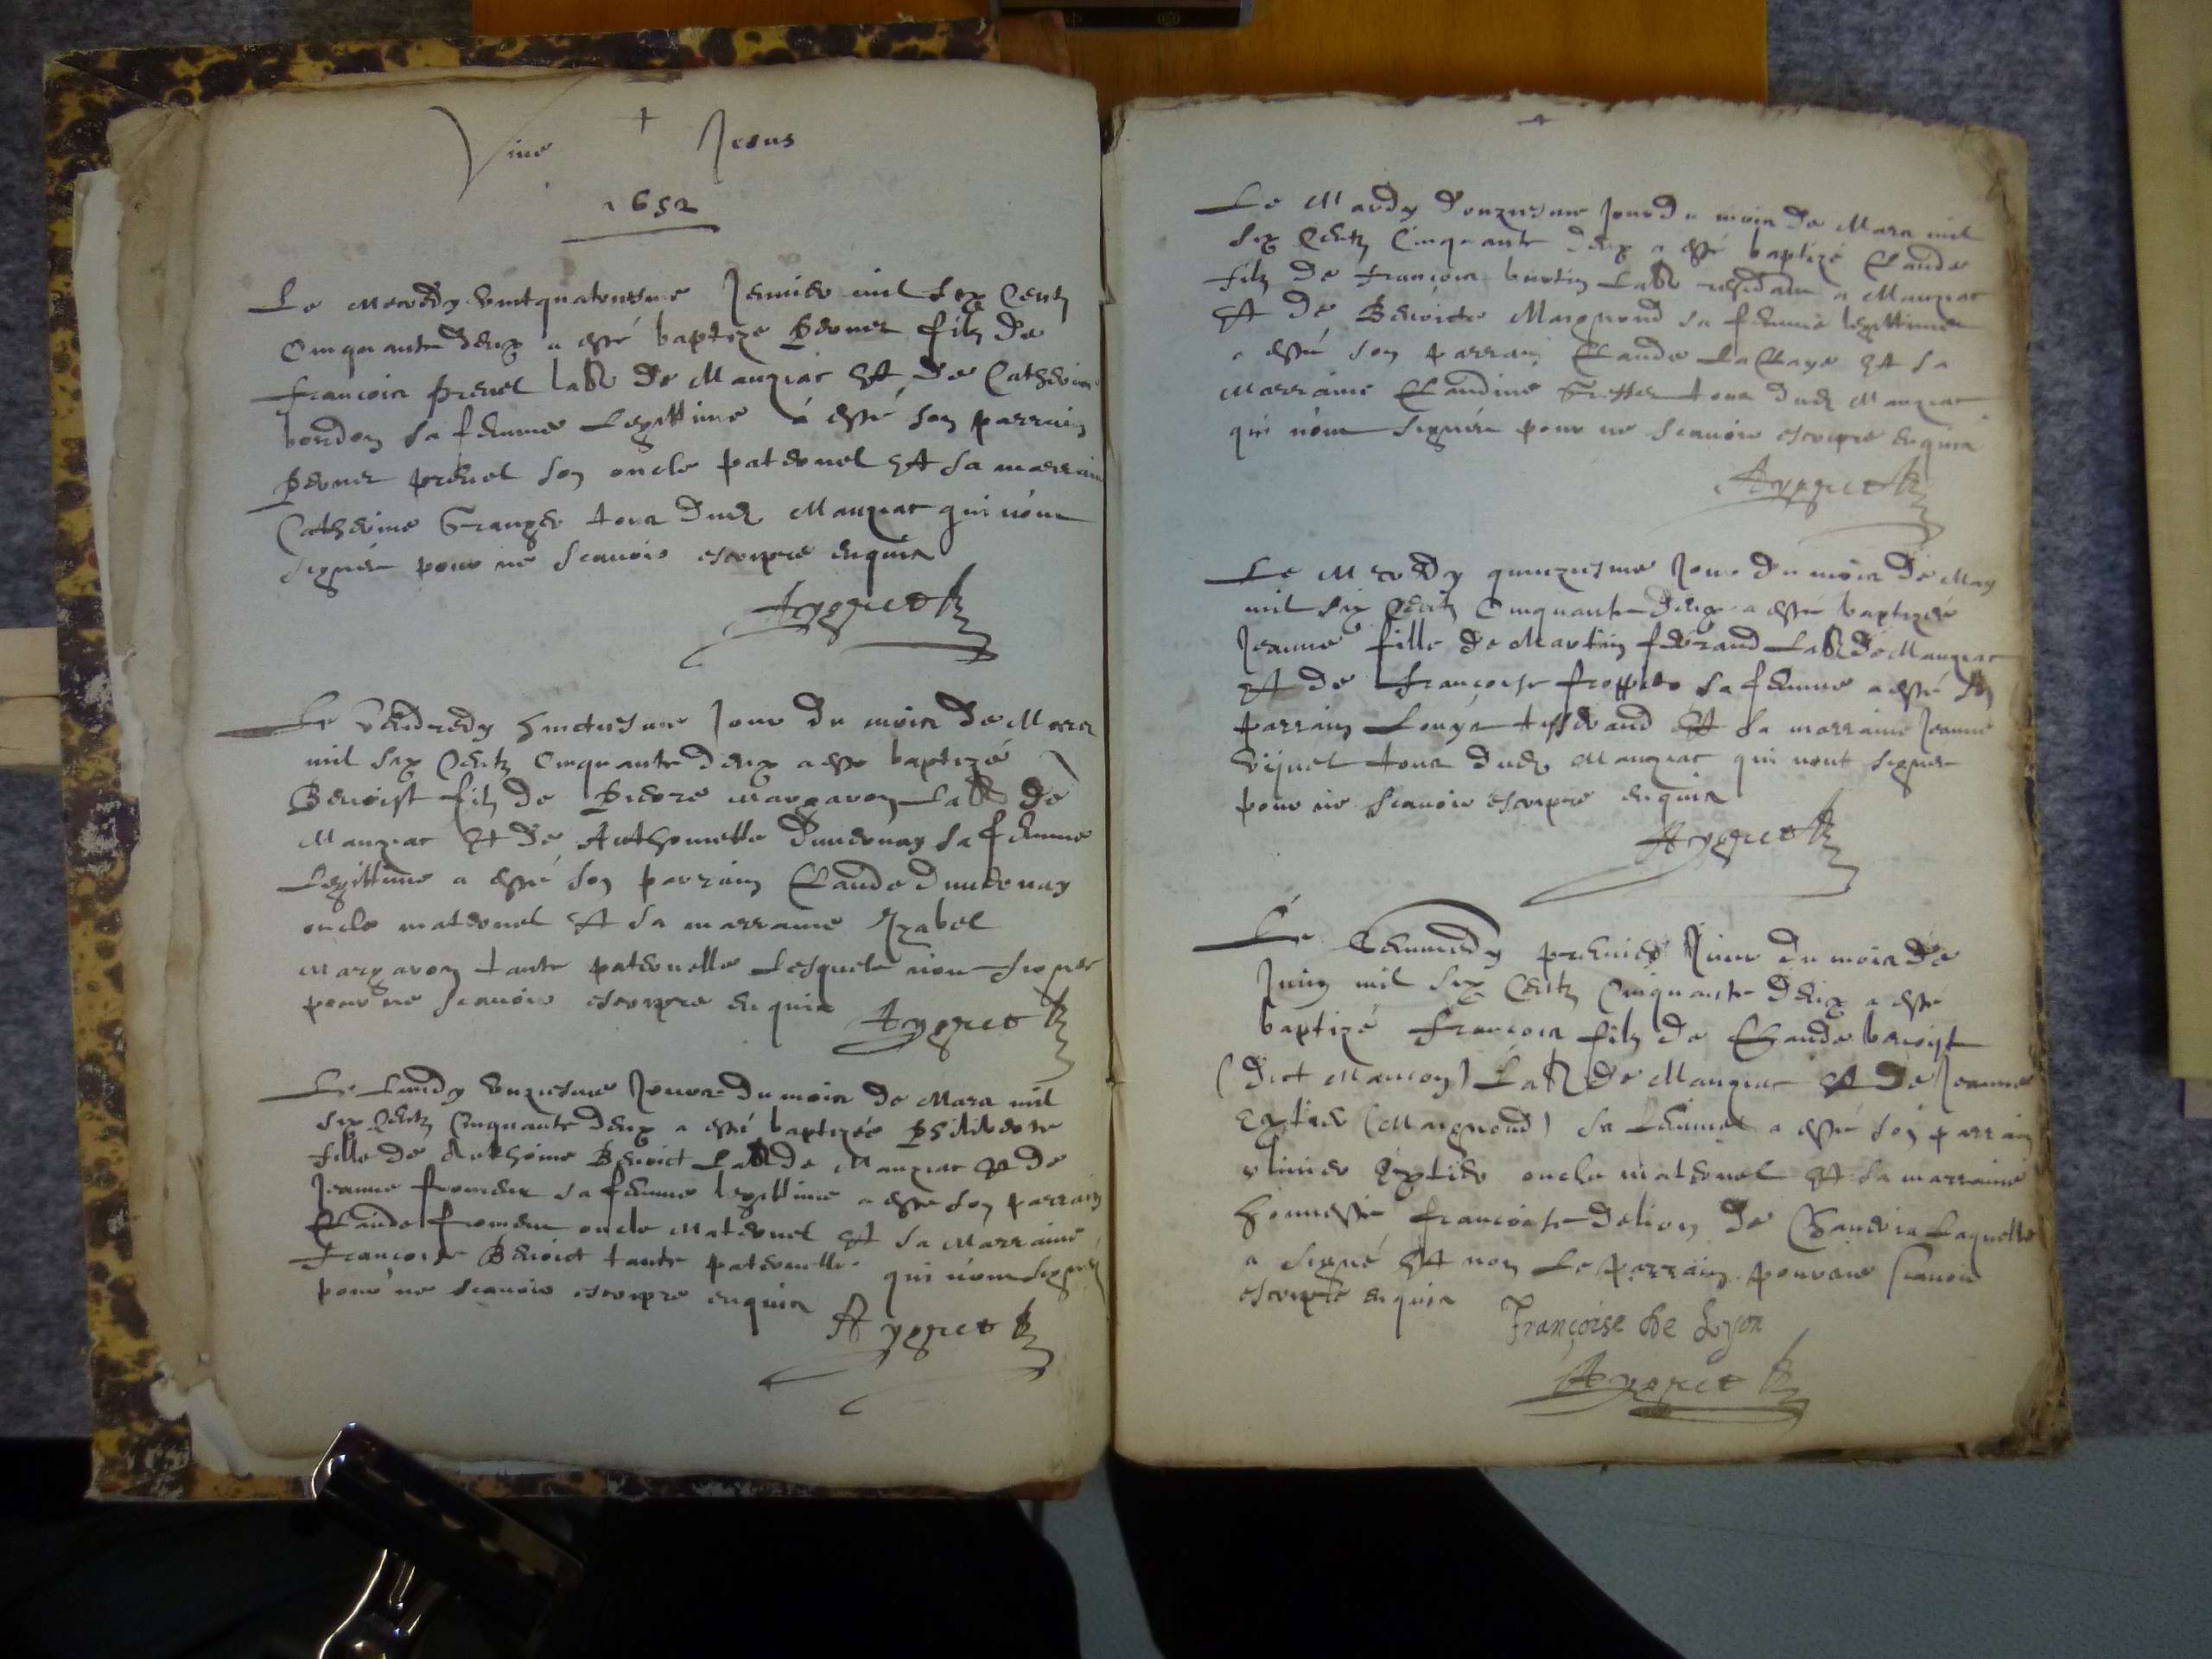 Vive + Jesus
1652
Le Mercredy vintquatriesme Jenvier mil six Centz
Cinquante deux a esté baptize Pernet filz de
francois prenel labr de Manziat Et de Catherine
bondon sa femme Legittime à esté son parrain
Pernet prenel son oncle paternel Et sa marraine
Catherine Granger tous dud Manziat qui n'ont
signés pour ne scavoir escripre enquis
Le Vendredy huictiesme Jour du mois de Mars
mil six Centz Cinquante deux a esté baptizé
Benoist filz de Pierre margaron Labr de
Manziat Et de Anthoinette Duvernay sa femme
Legittime a esté son parrain Claude Duvernay
oncle maternel Et sa marraine Izabel
margaron tante paternelle Lesquels n'ont signer
pour ne scavoir escripre enquis
Le Lundy unziesme Jour du mois de Mars mil
six Centz Cinquante deux a esté baptizée Philiberte
fille de Anthoine Benoict Labr de Manziat Et de
Jeanne froment sa femme legittime a esté son parrain
Claude froment oncle Maternel Et sa Marraine
francoise Benoict tante paternelle qui n'ont signés
pour ne scavoir escripre enquis
+
Le Mardy douziesme Jour du mois de Mars mil
six Centz Cinquante deux a esté baptizé Claude
filz de francois burtin Labr residant a Manziat
Et de Benoicte Maignond sa femme legittime
a esté son parrain Claude La Claye Et sa
Marraine Claudine tous dud Manziat
qui n'ont signés pour ne scavoir escripre enquis
Le Mercredy quinziesme Jour du mois de May
mil six Centz Cinquante deux a esté baptizée
Jeanne fille de Martin ferand Labr de Manziat
Et de francoise sa femme a esté son
parrain Louys tisserand Et sa marraine Jeanne
Vijuel tous dud Manziat qui n'ont signer
pour ne scavoir escripre enquis
Le premier Jour du mois de
Juing mil six Centz Cinquante deux a esté
baptizé francois filz de Claude benoist
(dict Manion) Labr de Manziat Et de Jeanne
(Maignond) sa femme a esté son parrain
oncle maternel Et sa marraine
honneste francoise delion de Laquelle
a signé Et non Le parrain pour ne scavoir
escripre enquis
Françoise de Lyon